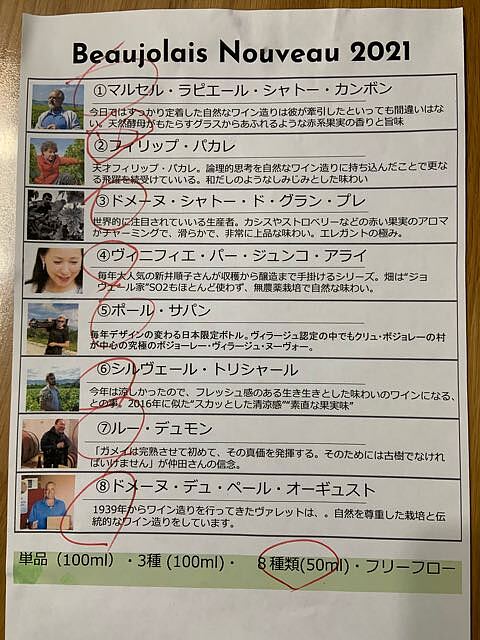 Beaujolais Nouveau 2021
①マルセル・ラピエール・シャトー・カンボン
今日ではすっかり定着した自然なワイン造りは彼が牽引したといっても間違いはな
い。天然酵母がもたらすグラスからあふれるような赤系果実の香りと旨味
②フィリップ・パカレ
天才フィリップ・パカレ。論理的思考を自然なワイン造りに持ち込んだことで更な
る飛躍を続受けていいる。和だしのようなしみじみとした味わい
③ドメーヌ・シャトー・ド・グラン・プレ
世界的に注目されていいる生産者。カシスやストロベリーなどの赤い果実のアロマ
がチャーミングで、滑らかで、非常に上品な味わい。エレガントの極み。
④ヴィニフィエ・パー・ジュンコ・アライ
毎年大人気の新井順子さんが収穫から醸造まで手掛けるシリーズ。畑は“ジョ
ヴェール家”SO2もほとんど使わず、無農薬栽培で自然な味わい。
⑤ポール・サパン
毎年デザインの変わる日本限定ボトル。ヴィラージュ認定の中でもクリュ・ボジョレーの村
が中心の究極のボジョーレー・ヴィラージュ・ヌーヴォー。
⑥シルヴェール・トリシャール
今年は涼しかったので、フレッシュ感のある生き生きとした味わいのワインになる、
との事。2016年に似た“スカッとした清涼感”“素直な果実味”
⑦ルー・デュモン
「ガメイは完熟させて初めて、その真価を発揮する。そのためには古樹でなけれ
ばいけません」が仲田さんの信念。
⑧ドメーヌ・デュ・ペール・オーギュスト
1939年からワイン造りを行ってきたヴァレットは、。自然を尊重した栽培と伝
統的なワイン造りをしています。
単品（100ml）・3種 (100ml)・ 8種類(50ml)・フリーフロー